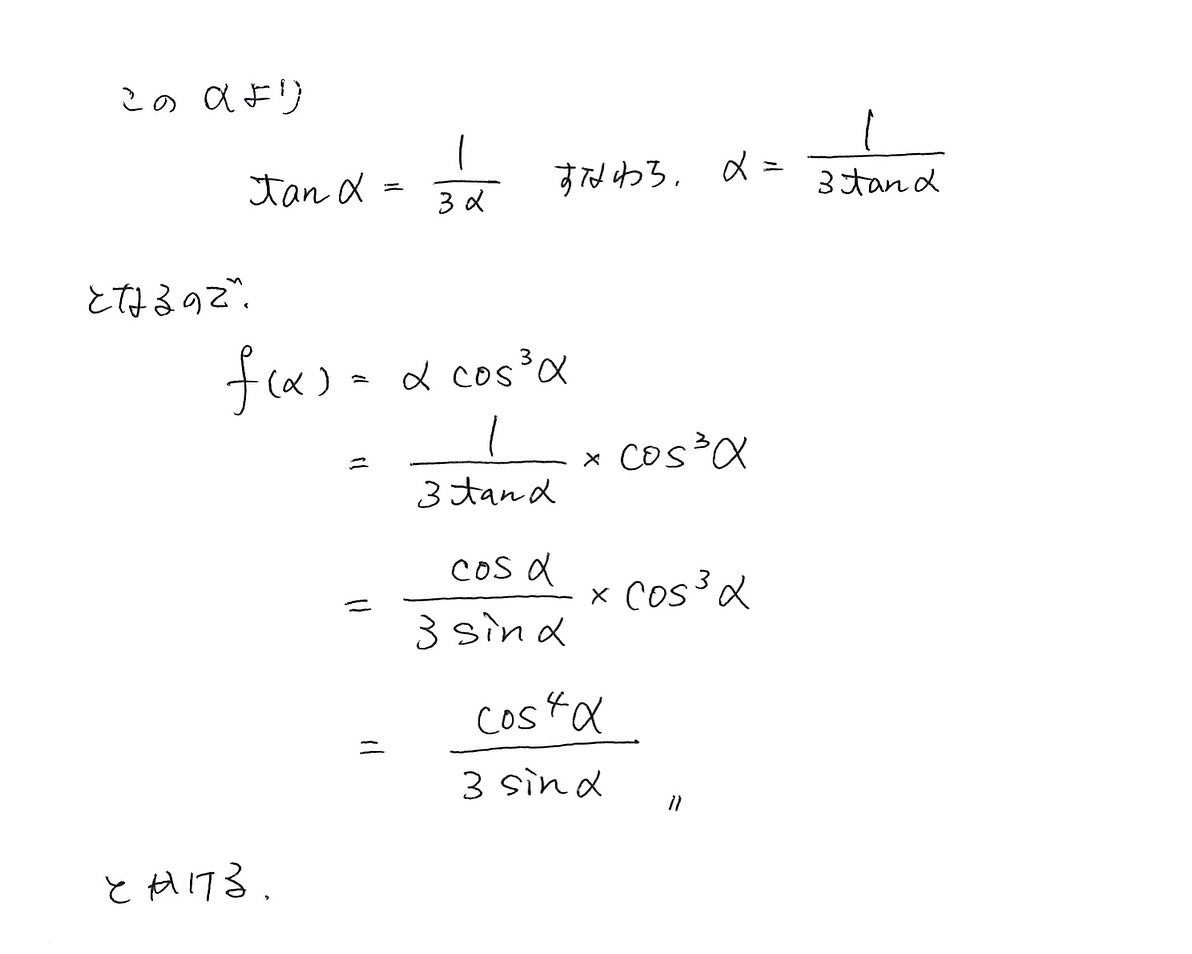 この αより
tanα = 1/3α すなわち, α = 1/3tanα
となるので,
f(α) = α cos³α
= 1/3tanα × cos³α
= cosα/3sinα × cos³α
= cos⁴α/3sinα 〃
とかける.